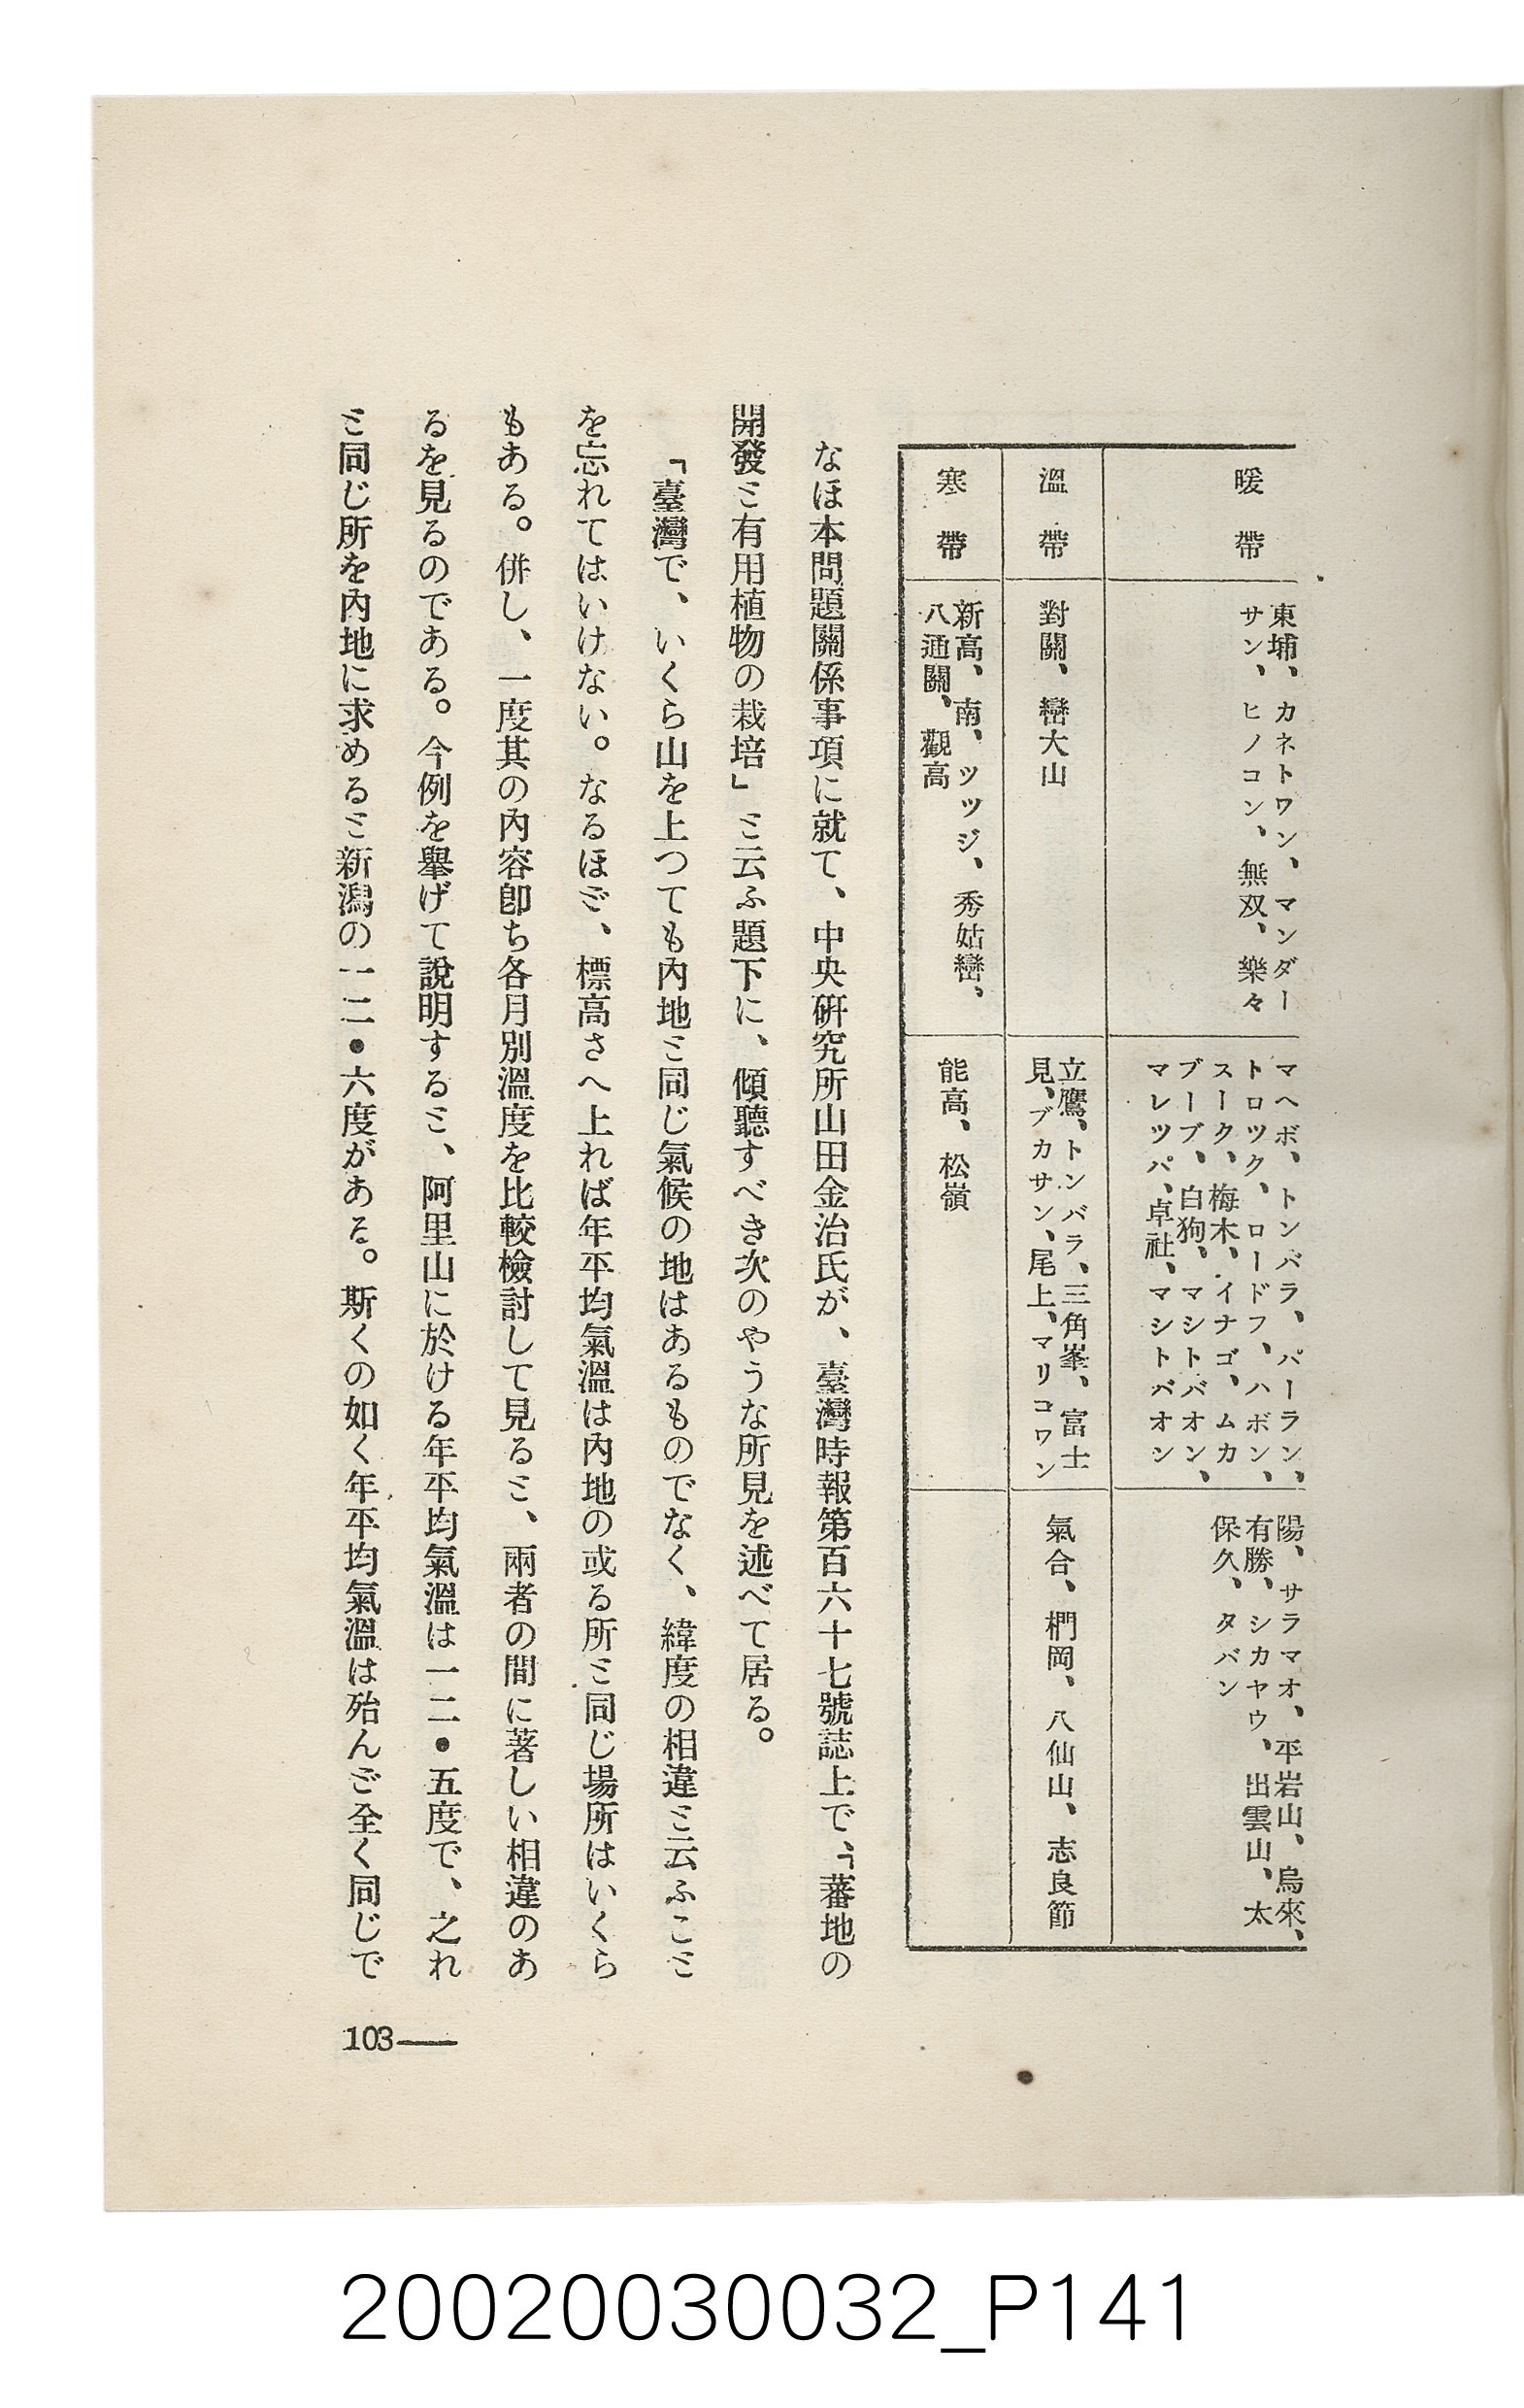 暖帶
東埔、カネトワン、マンダー
サン、ヒノコン、無双、樂々
マヘボ、トンバラ、パーラン、
トロツク、ロードフ、ハボン、
スーク、梅木、イナゴ、ムカ
ブーブ、白狗、マシトバオン、
マレツパ、卓社、マシトバオン
陽、サラマオ、平岩山、烏來、
有勝、シカヤウ、出雲山、太
保久、タバン
溫帶
對關、巒大山
立鷹、トンバラ、三角峯、富士
見、ブカサン、尾上、マリコワン
氣合、椚岡、八仙山、志良節
寒帶
新高、南、ツツジ、秀姑巒、
八通關、觀高
能高、松嶺
なほ本問題關係事項に就て、中央硏究所山田金治氏が、臺灣時報第百六十七號誌上で、「蕃地の
開發ミ有用植物の栽培」ミ云ふ題下に、傾聽すべき次のやうな所見を述べて居る。
「臺灣で、いくら山を上つても內地ミ同じ氣候の地はあるものでなく、緯度の相違ミ云ふこミ
を忘れてはいけない。なるほど、標高さへ上れば年平均氣溫は內地の或る所ミ同じ場所はいくら
もある。併し、一度其の內容卽ち各月別溫度を比較檢討して見るミ、兩者の間に著しい相違のあ
るを見るのである。今例を擧げて說明するミ、阿里山に於ける年平均氣溫は一二•五度で、之れ
ミ同じ所を內地に求めるミ新潟の一二•六度がある。斯くの如く年平均氣溫は殆んど全く同じで
103—
20020030032_P141